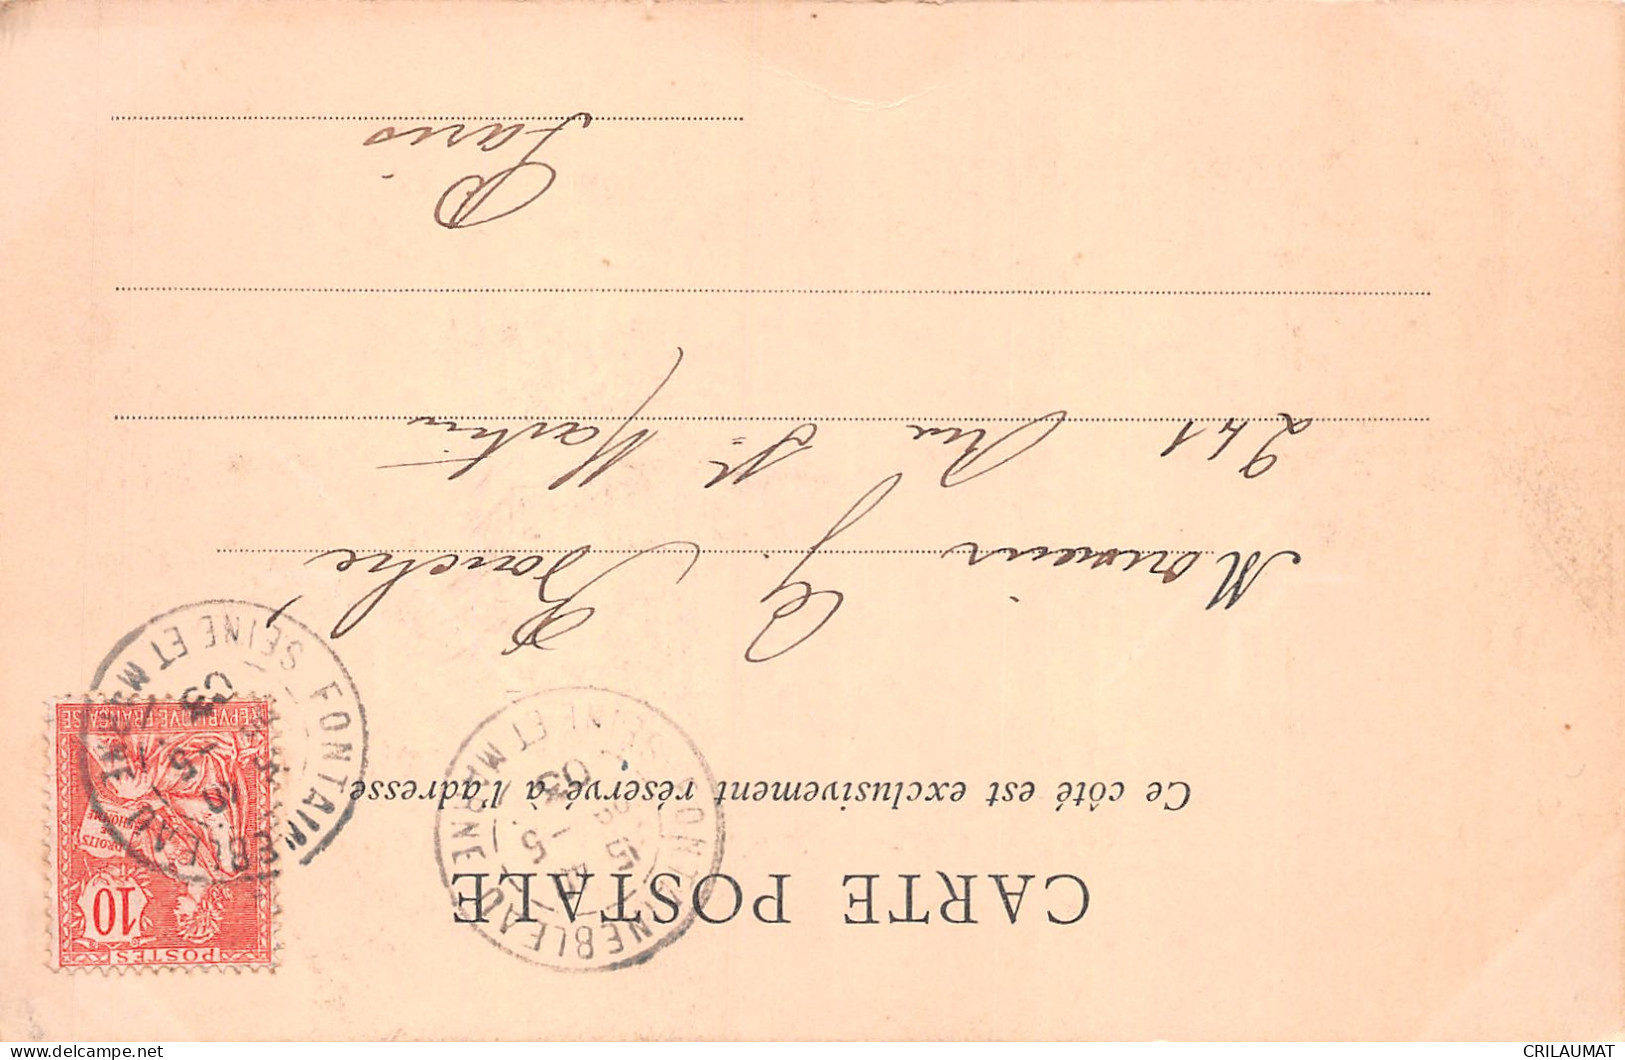 CARTE POSTALE
Ce côté est exclusivement réservé à l'adresse
POSTES
10
DROITS
DE
L'HOMME
REPVBLIQVE FRANÇAISE
FONTAINEBLEAU
SEINE ET MARNE
5
03
FONTAINEBLEAU
SEINE ET MARNE
5
03
Monsieur G. Bouché
241 Rue St Martin
Paris
delcampe.net
CRILAUMAT